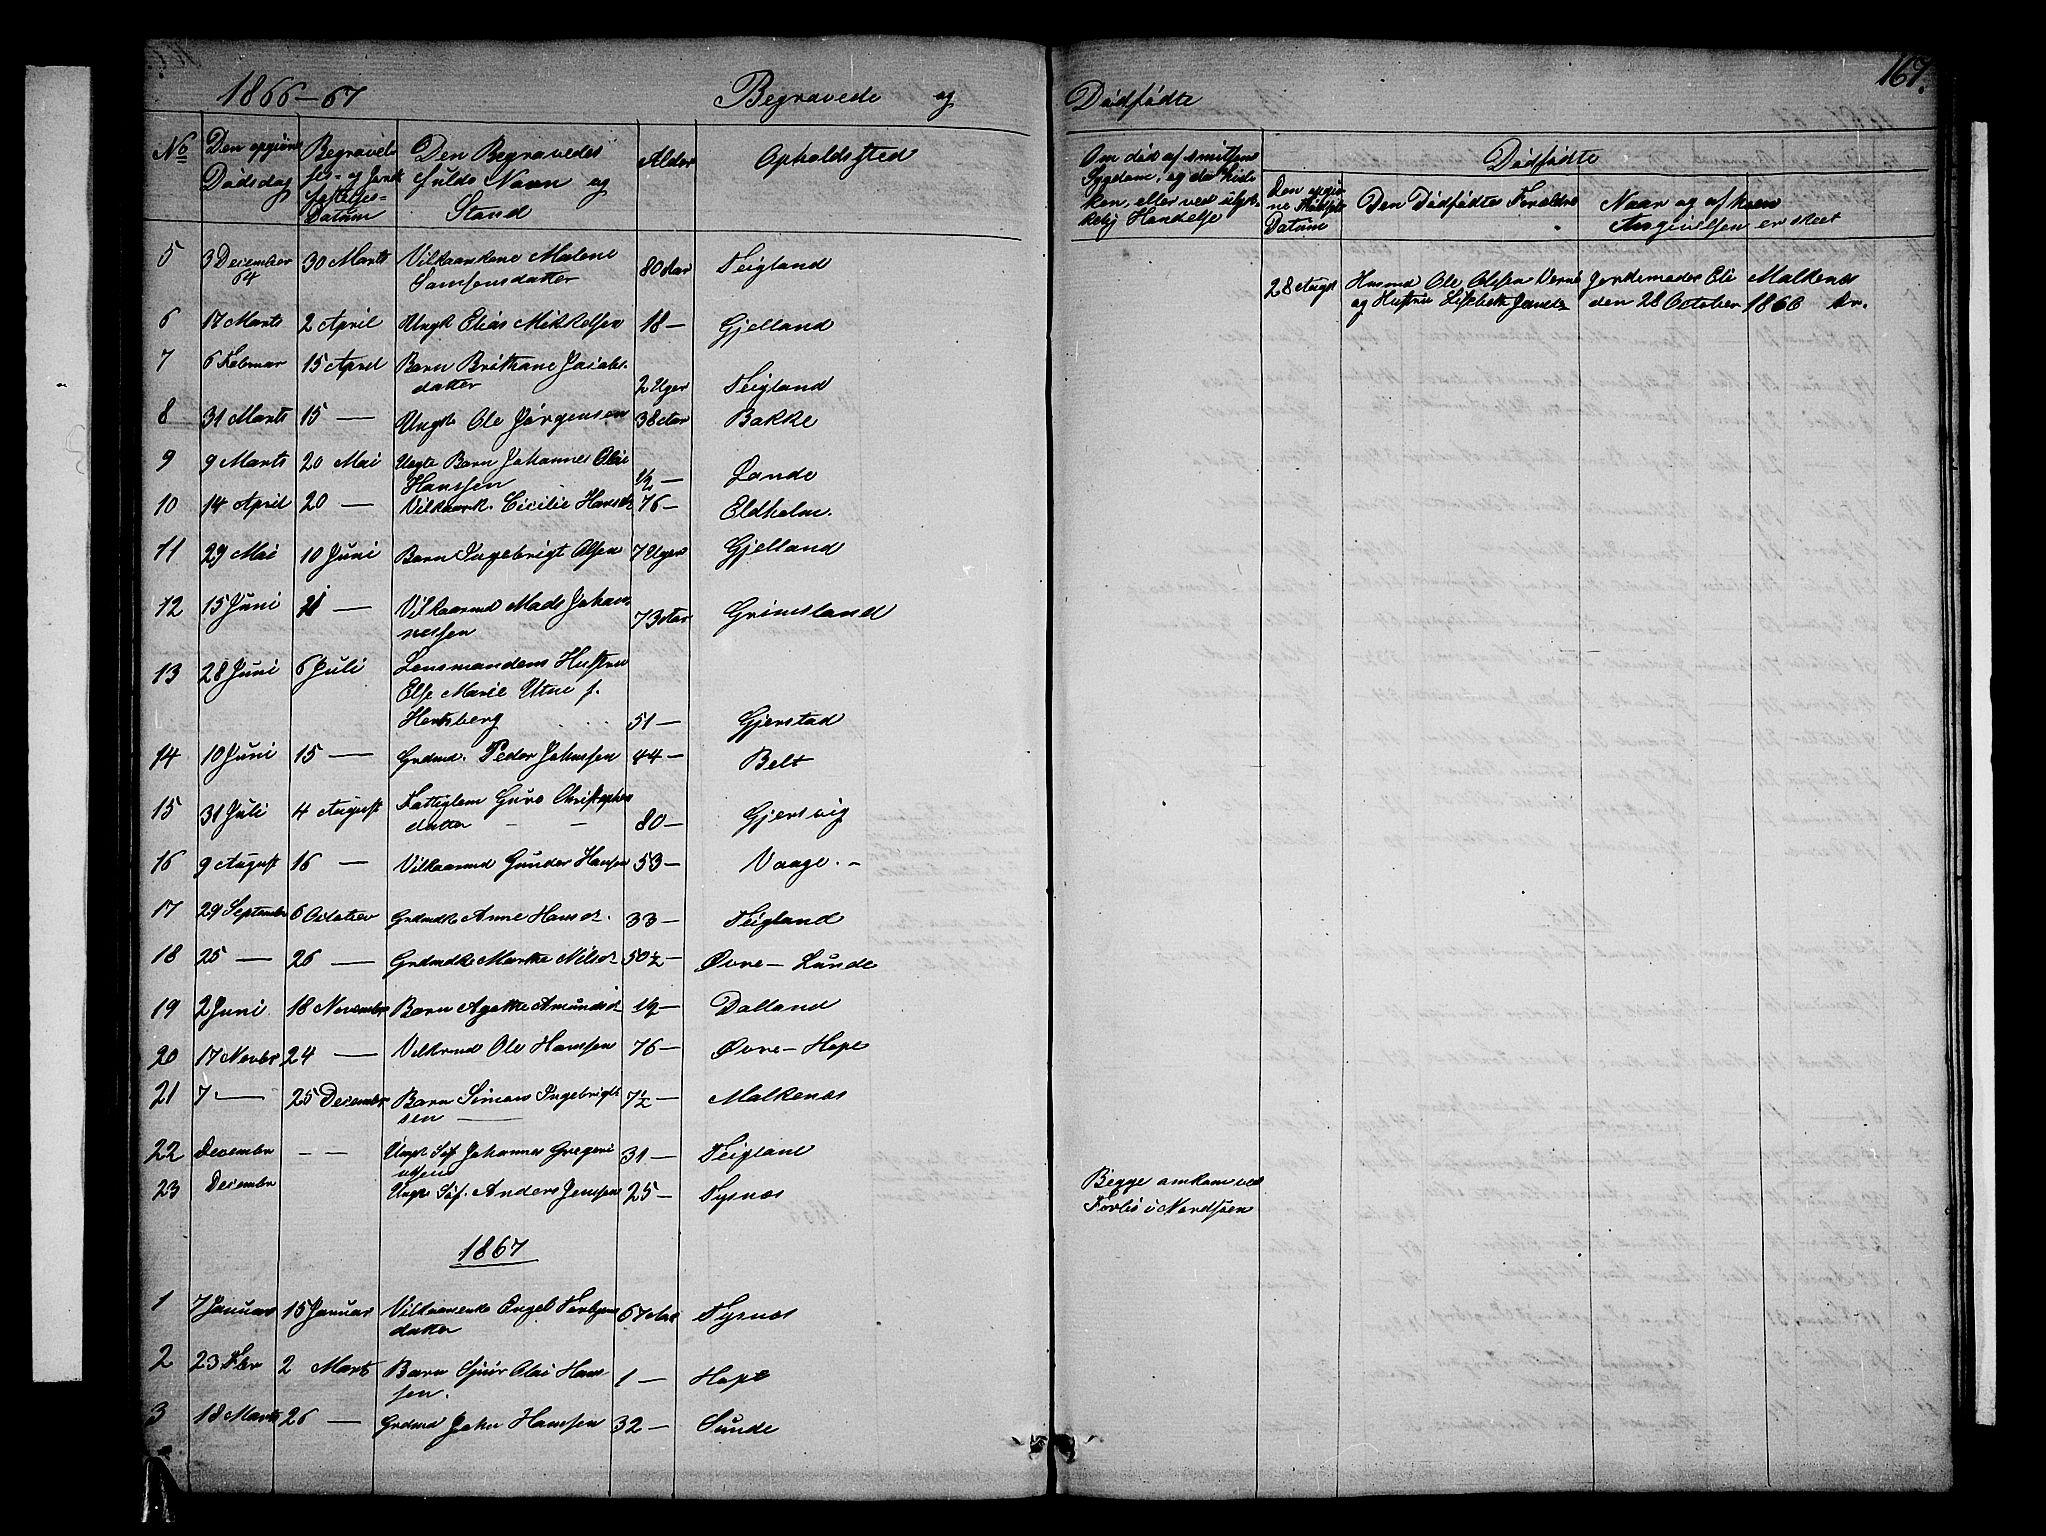 1866-67 Begravede og Dödfödte 167.
No Den opgivne Dödsdag Begravelses- og Jordfæstelses-Datum Den Begravedes fulde Navn og Stand Alder Opholdssted
Om död af smitsom Sygdom, og da hvilken, eller ved ulykkelig Hændelse
Dödfödte
Datum Den Dödfödtes Forældre Naar og af hvem Angivelsen er skeet
5 3 December 64 30 Marts Vilkaarkone Malene Samsonsdatter 80 Aar Teigland
28 Augst Husmd Ole Olsen og Hustru Lisbeth Jansdr Jordemoder Eli Malkenes den 28 October 1866
6 17 Marts 2 April Ungk Elias Mikkelsen 18 — Gjelland
7 6 Februar 15 April Barn Brithane Jacobsdatter 2 Uger Teigland
8 31 Marts 15 — Ungk Ole Jörgensen 38 Aar Bakke
9 9 Marts 20 Mai Uegte Barn Johannes Olai Hanssen 1/2 — Lande
10 14 April 20 — Vilkaark. Cicilie Hansdr 76 — Eldholm.
11 29 Mai 10 Juni Barn Ingebrigt Olsen 7 Uger Gjelland
12 15 Juni 21 — Vilkaarmd Mads Johannessen 73 Aar Grimsland
13 28 Juni 6 Juli Lensmandens Hustru
Else Marie Utne f.
Hertsberg 51 — Gjerstad
14 10 Juni 15 — Grdmd. Peder Johnssen 44 — Belt
15 31 Juli 4 August Fattiglem Guro Christophersdatter 80 — Gjersvig
16 9 August 16 — Vilkaarmd Gunder Hansen 53 — Vaage. -
17 29 September 6 October Grdmdk Anne Hansdr. 33 — Teigland
18 25 — 26 — Grdmdk Marthe Nilsdr 50 1/2 — Övre - Lunde
19 2 Juni 18 November Barn Agathe Amundsdr 1/2 — Dalland
20 17 Novbr 24 — Vilkrmd Ole Hanssen 76 — Övre - Hope
21 7 — 25 Decembr Barn Simon Ingebrigtsen 7 1/2 — Malkenes
22 Decembr - - Ungk Söf. Johannes Gregoriussen 31 — Teigland
23 Decembr Ungk Söf. Anders Jenssen 25 — Tysnæs
Begge omkom ved
Forlis i Nordsöen
1867
1 7 Januar 15 Januar Vilkaarenke Engel Torbjörnsdatter 67 Aar Tysnæs
2 23 Fbr 2 Marts Barn Sjur Olai Hanssen. 1 — Hope
3 18 Marts 26 — Grdmd John Hanssen 32 — Sunde